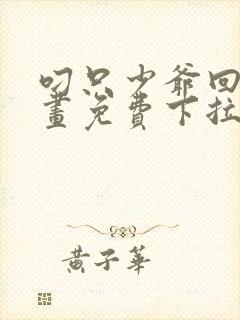 叼只少爷回
畫免費下拉
黃子華